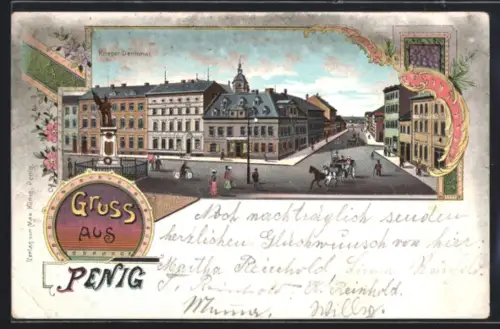 Krieger-Denkmal
Gruss
aus
Penig
Verlag von Max König, Penig.
Noch nachträglich senden
herzlichen Glückwunsch von hier
Martha Reinhold,
Reinhold
Mama. Willy.